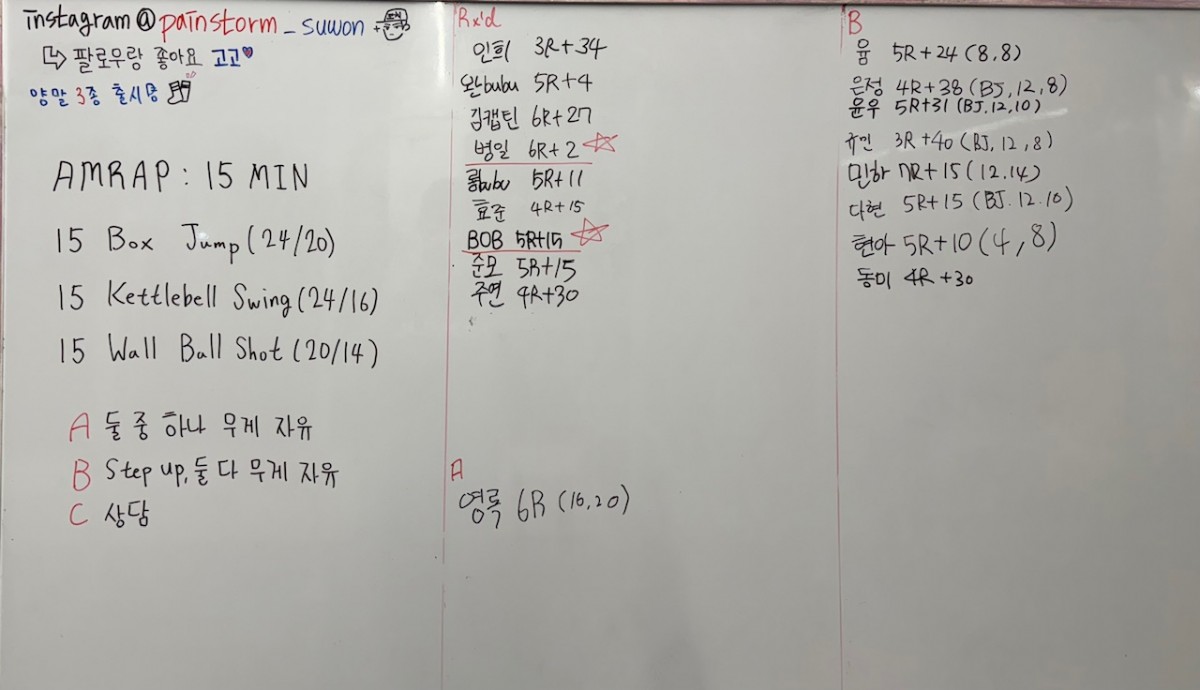 instagram@painstorm_suwon
팔로우랑 좋아요 고고
양말 3종 출시중
AMRAP : 15 MIN
15 Box Jump (24/20)
15 Kettlebell Swing (24/16)
15 Wall Ball Shot (20/14)
A 둘 중 하나 무게 자유
B Step up, 둘 다 무게 자유
C 상담
Rx'd
인희 3R+34
완bubu 5R+4
김캡틴 6R+27
병일 6R+2
bubu 5R+11
효준 4R+15
BOB 5R+15
준모 5R+15
주연 4R+30
A
영록 6R (16,20)
B
윰 5R+24 (8,8)
은정 4R+38 (BJ,12,8)
윤우 5R+31 (BJ,12,10)
규민 3R+40 (BJ,12,8)
민하 7R+15 (12,14)
다현 5R+15 (BJ.12.10)
현아 5R+10 (4,8)
동미 4R+30